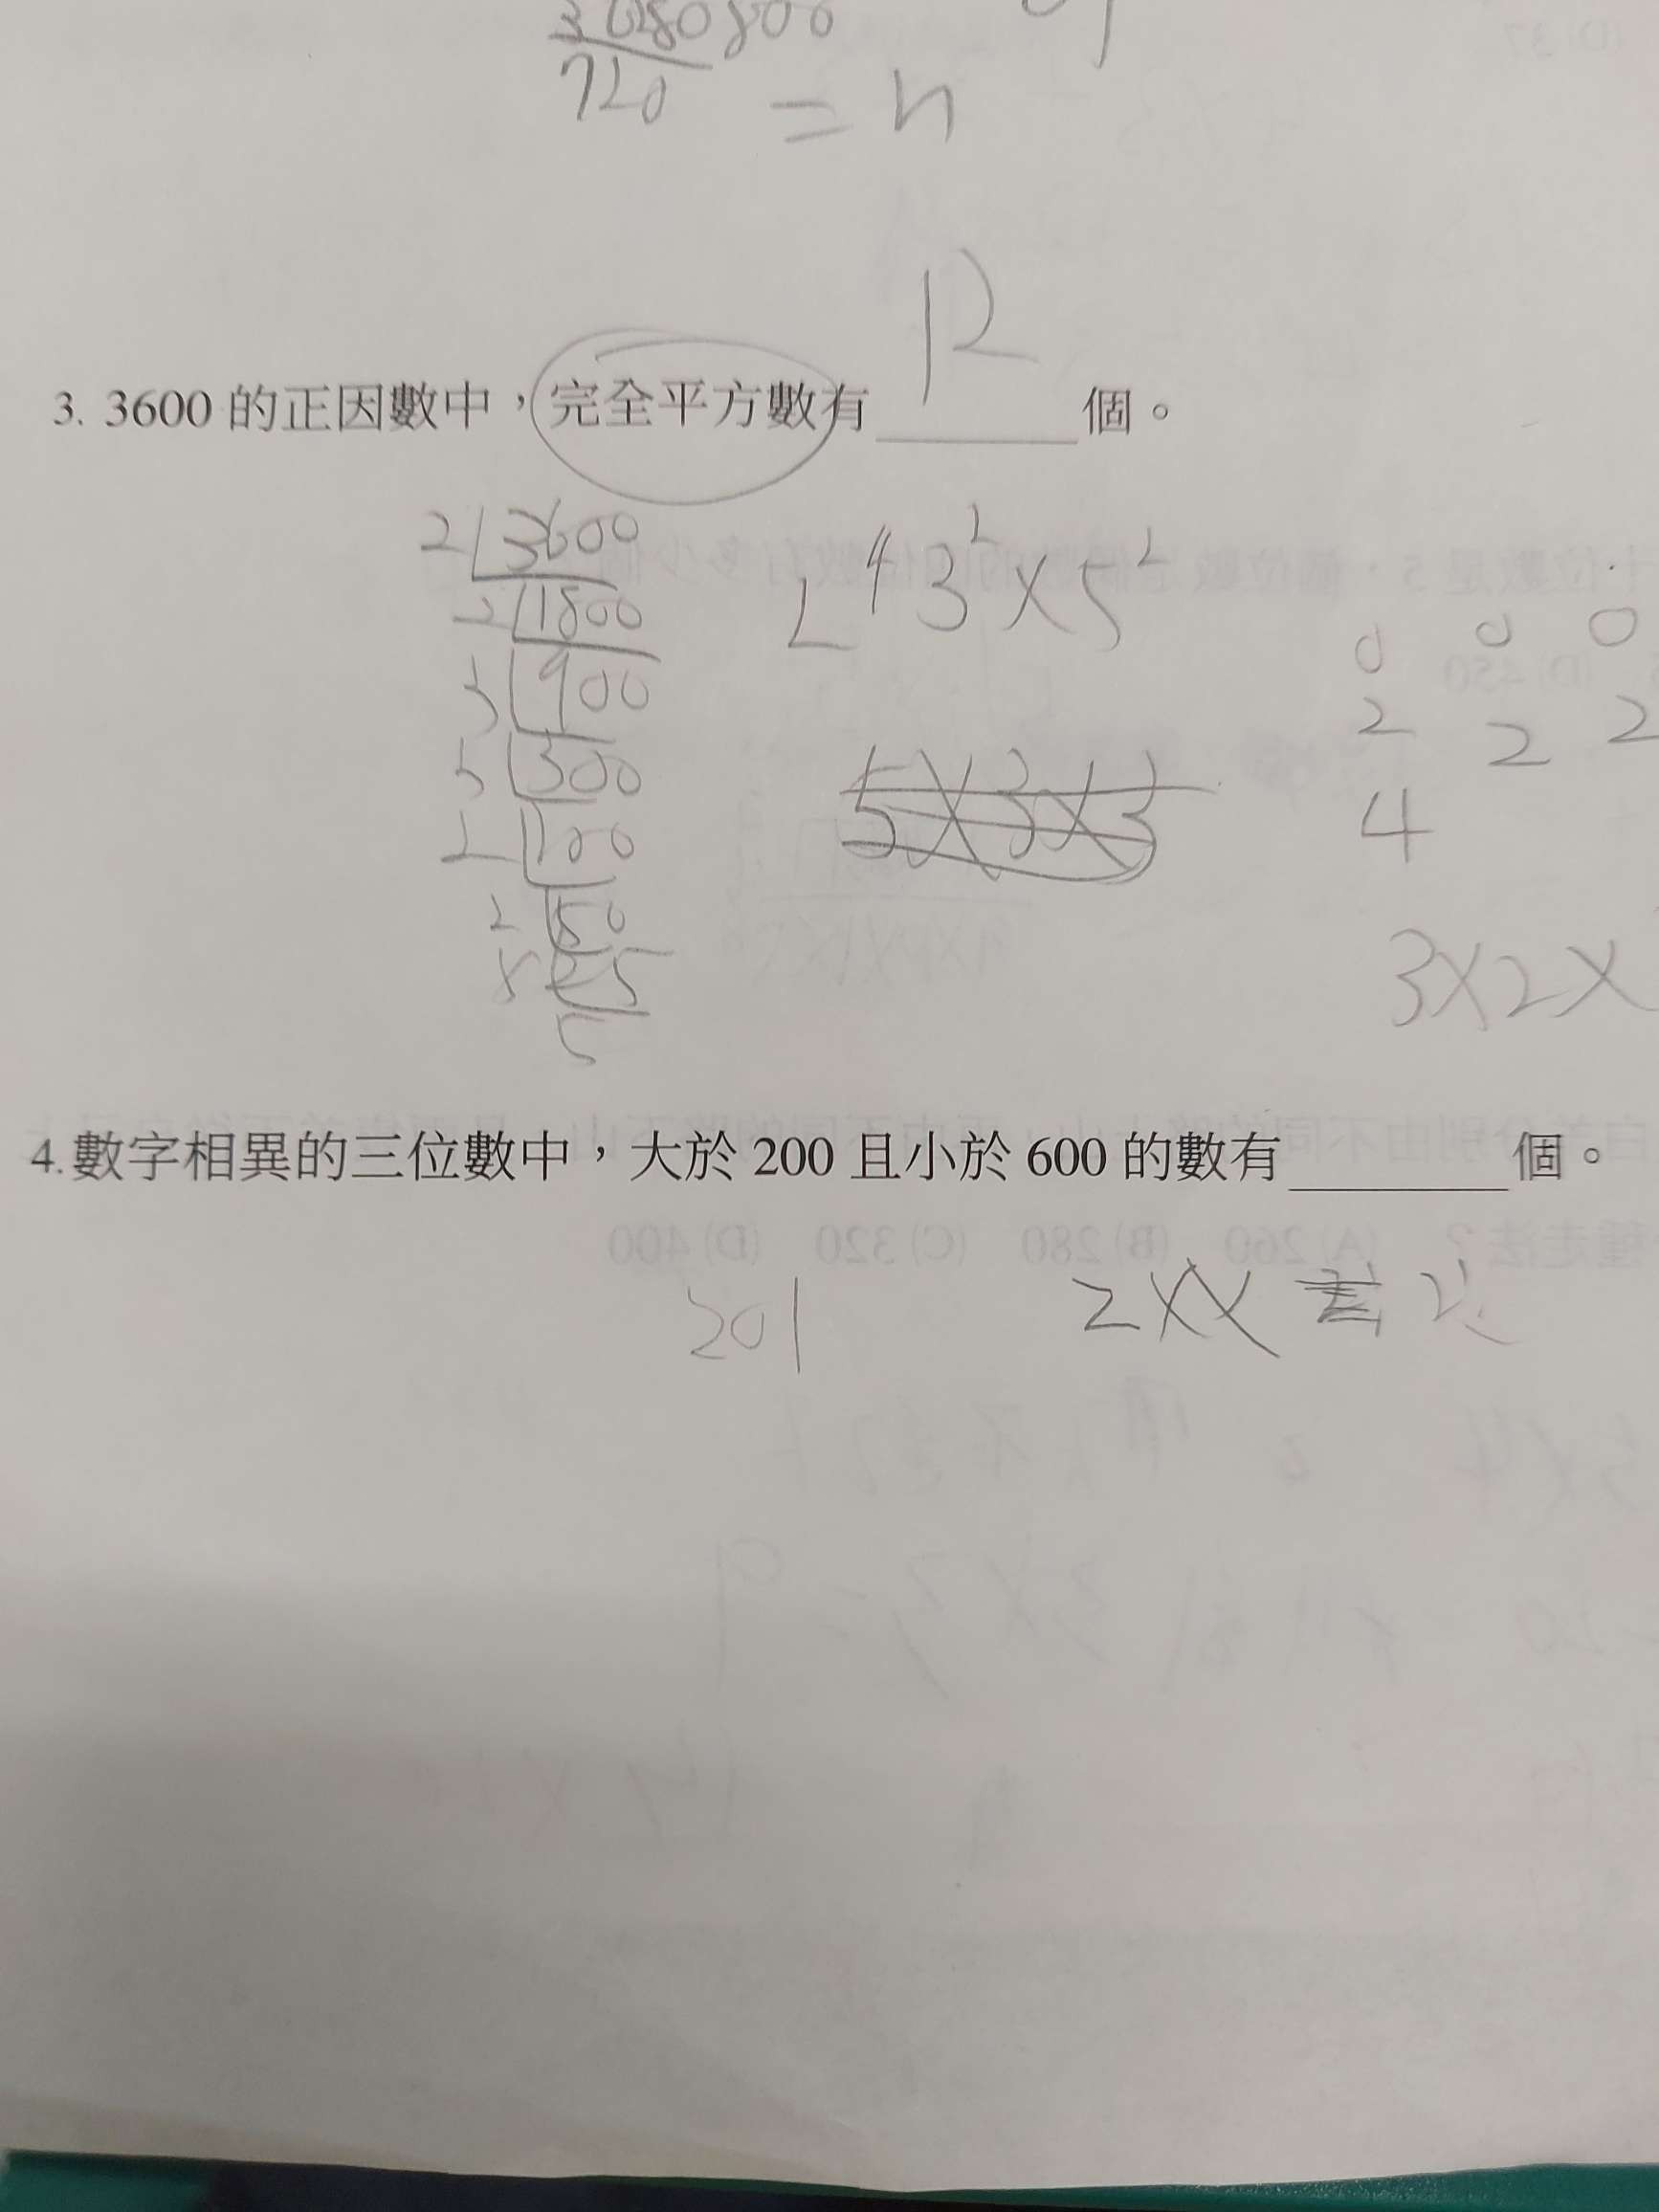 3080800
720 = n
12
3. 3600 的正因數中，完全平方數有 個。
2 3600
2 1800
3 900
3 300
2 100
2 50
5 25
5
2⁴ 3² × 5²
5×3×3
0 0 0
2 2 2
4
3×2×
4.數字相異的三位數中，大於 200 且小於 600 的數有 個。
201
2XX